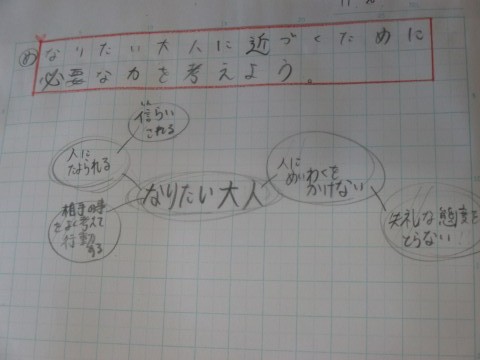 め なりたい大人に近づくために
必要な力を考えよう。
信らい
される
人に
たよられる
なりたい大人
人に
めいわくを
かけない
相手の事
をよく考えて
行動
する
失礼な態度を
とらない